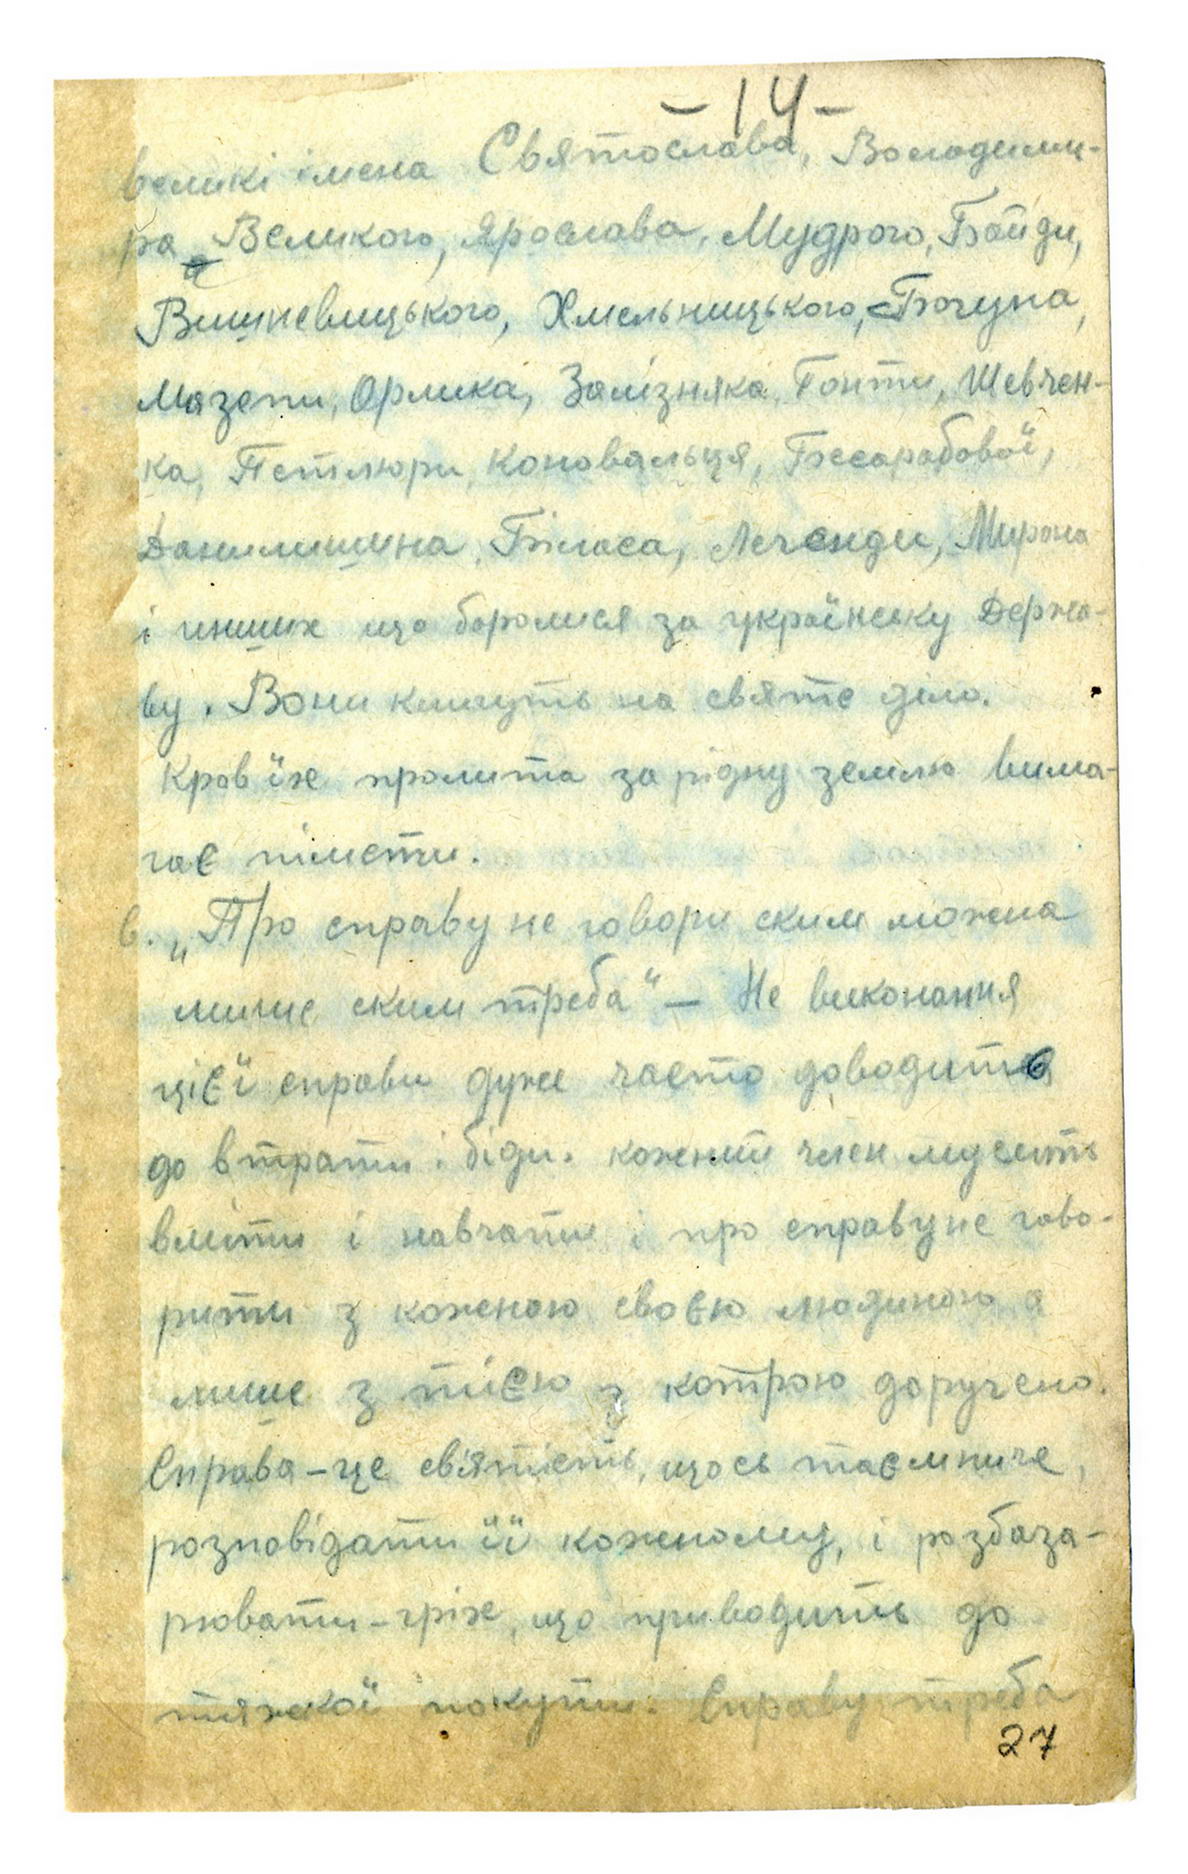 -14-
великі імена Святослава, Володими-
ра Великого, Ярослава, Мудрого, Байди,
Вишневицького, Хмельницького, Богуна,
Мазепи, Орлика, Залізняка, Гонти, Шевчен-
ка, Петлюри, Коновальця, Бесарабової,
Данилишина, Біласа, Легенди, Мирона
і инших що боролися за українську Держа-
ву. Вони кличуть на святе діло.
Кров їх пролита за рідну землю вима-
гає пімсти.
6. „Про справу не говори ским можна
лише ским треба" — Не виконання
цієї справи дуже часто доводить
до втрати і біди. кожний член мусить
вміти і навчати і про справу не гово-
рити з коженою своєю людиною а
лише з тією з котрою доручено.
Справа – це святість, щось таємниче,
розповідати її кожному, і розбаза-
рювати – гріх, що приводить до
тяжкої покути. Справу треба
27